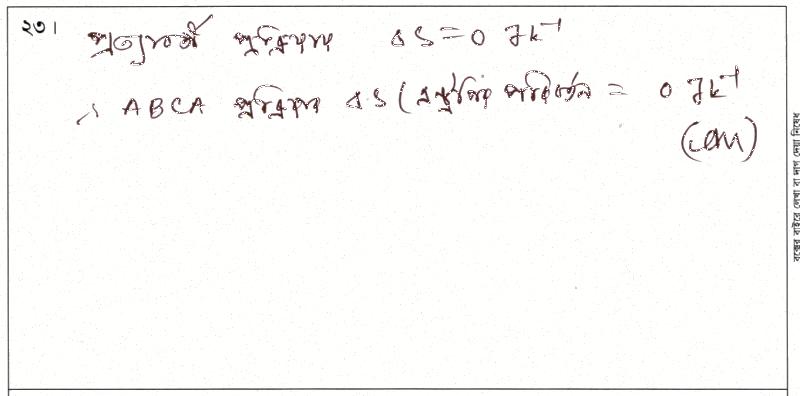 ২৩। প্রত্যাবর্তী প্রক্রিয়ায় ΔS = 0 JK⁻¹
∴ ABCA প্রক্রিয়ায় ΔS (এন্ট্রপির পরিবর্তন = 0 JK⁻¹
(Ans)
বক্সের বাইরে লেখা বা দাগ দেয়া নিষেধ